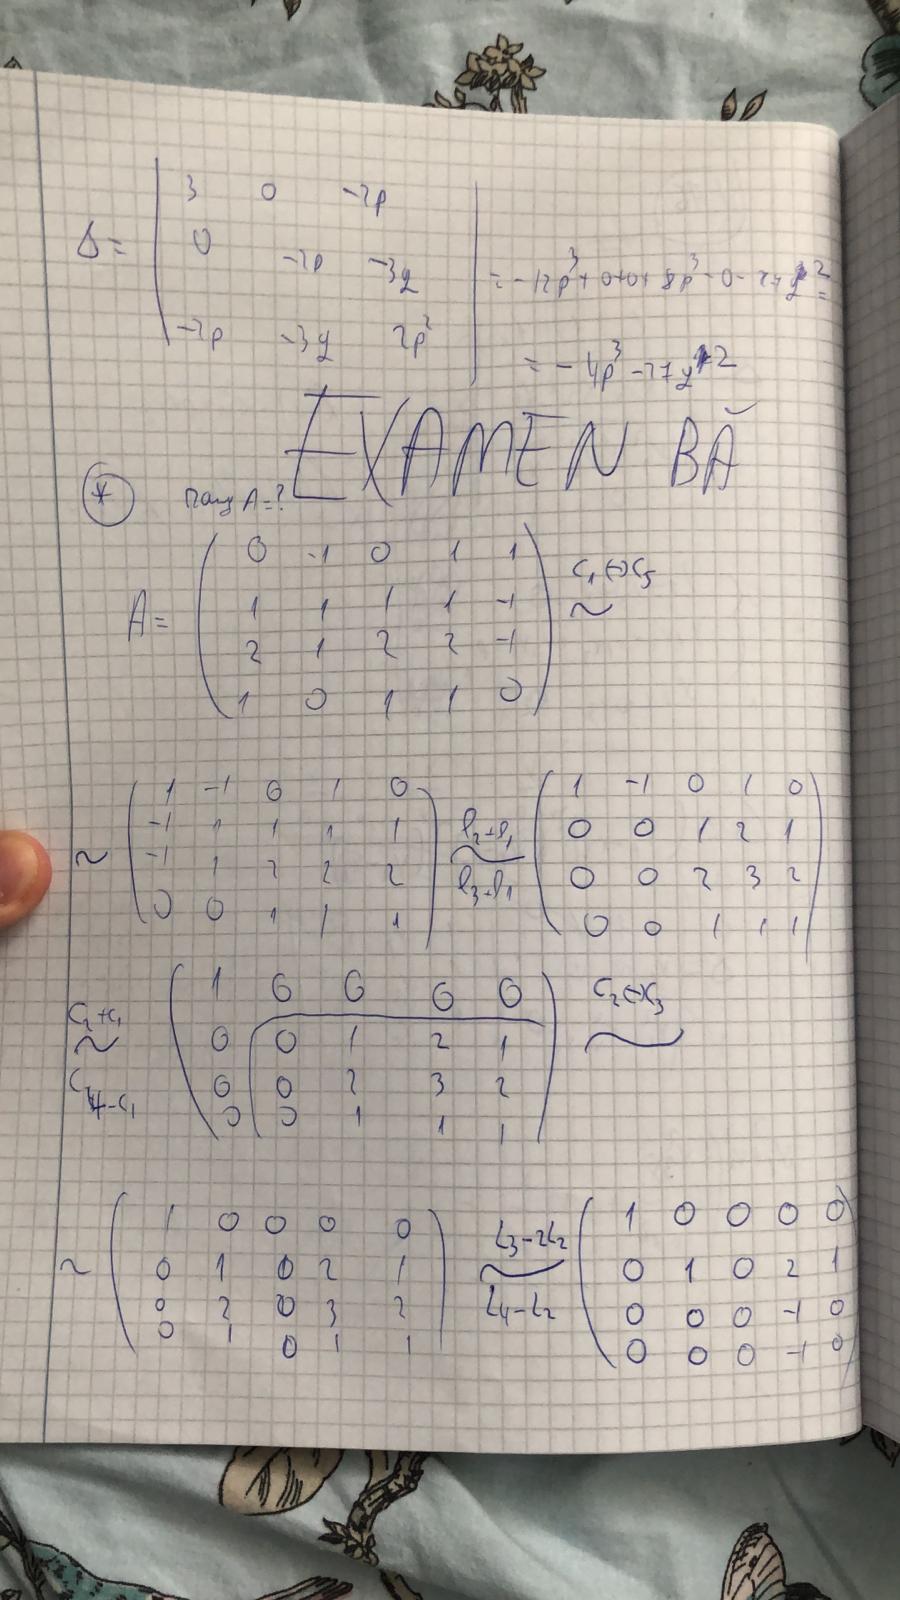 3 0 -2p
Δ= 0 -2p -3q = -12p³+0+0+8p³-0-27q²=
-2p -3q 2p²
= -4p³-27q²
EXAMEN BĂ
* rang A=?
0 -1 0 1 1
A= 1 1 1 1 -1 C₁↔C₅
2 1 2 2 -1 ~
1 0 1 1 0
1 -1 0 1 0
-1 1 1 1 1
~ -1 1 2 2 2
0 0 1 1 1
l₂+l₁
~
l₃+l₁
1 -1 0 1 0
0 0 1 2 1
0 0 2 3 2
0 0 1 1 1
C₂+C₁
~
C₄-C₁
1 0 0 0 0
0 0 1 2 1
0 0 2 3 2
0 0 1 1 1
C₂↔C₃
~
1 0 0 0 0
~ 0 1 0 2 1
0 2 0 3 2
0 1 0 1 1
L₃-2L₂
~
L₄-L₂
1 0 0 0 0
0 1 0 2 1
0 0 0 -1 0
0 0 0 -1 0